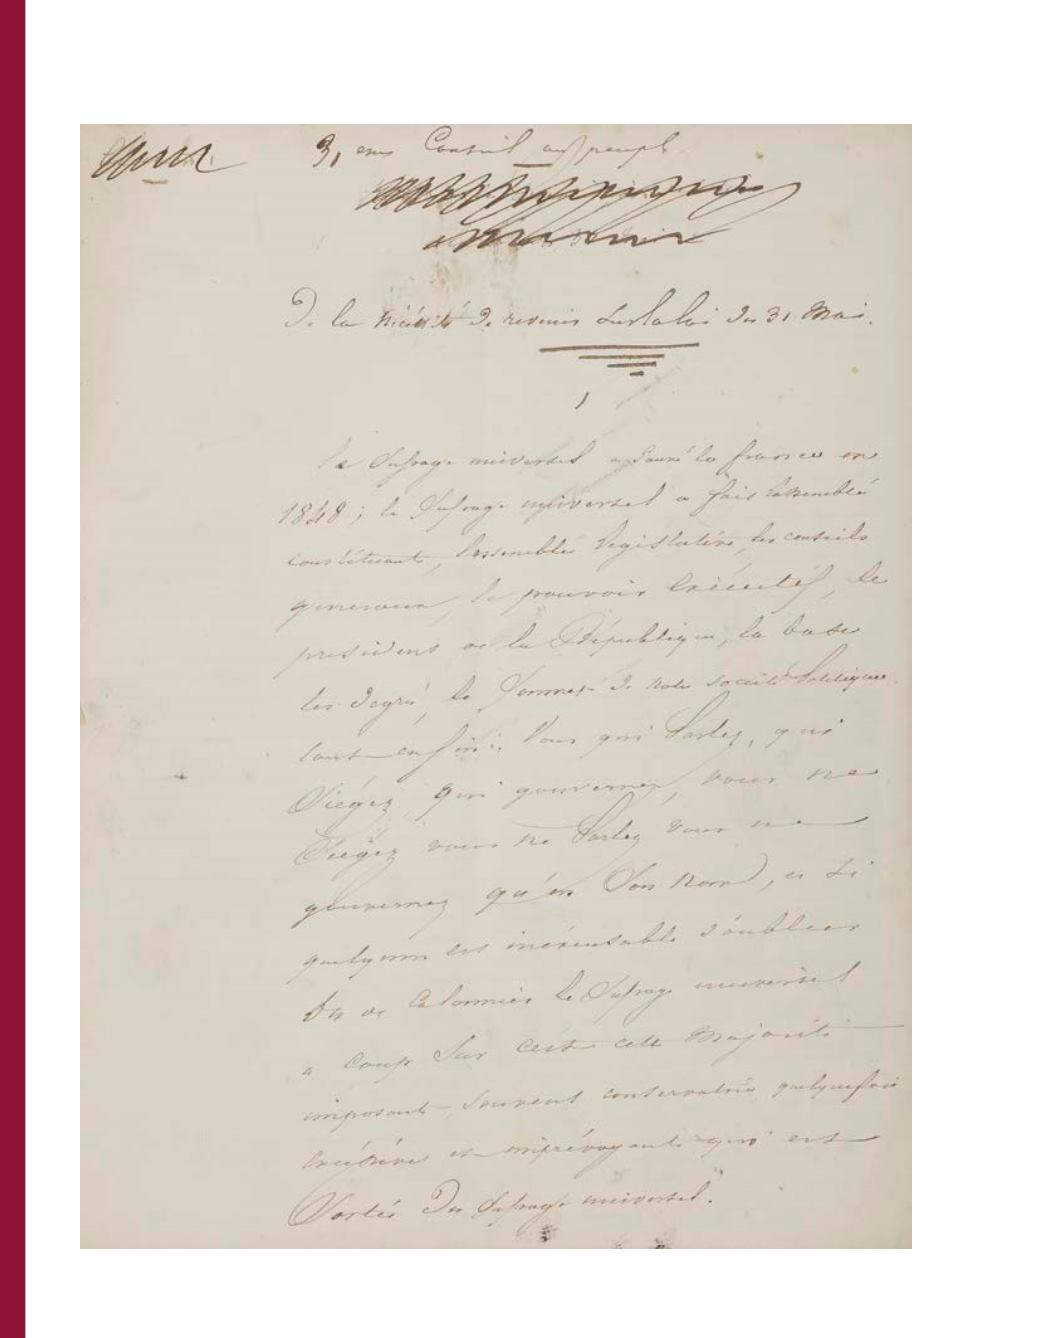 3, eme Conseil au peuple
De la nécéssité de revenir sur la loi du 31 Mai.
1
le sufrage universel a sauvé la france en
1848 ; le sufrage universel a fait l'assemblée
constituante, l'assemblée législative, les conseils
generaux, le pouvoir éxécutif, le
president de la République, la base
les degré, le sommet de notre société Politique
tout enfin : Vous qui Parlez, qui
Siégez, qui gouvernez, vous ne
Siégez vous ne Parlez vous ne
gouvernez qu'en son nom, et si
quelqu'un est inéxcusable d'oublier
et de calomnier le sufrage universel
a coup sur c'est cette majorité
imposante souvent conservatrice, quelquefois
et imprévoyante qui est
Sortie du sufrage universel.